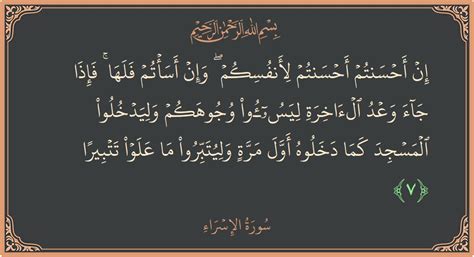 بِسْمِ اللَّهِ الرَّحْمَٰنِ الرَّحِيمِ
إِنْ أَحْسَنتُمْ أَحْسَنتُمْ لِأَنفُسِكُمْ ۖ وَإِنْ أَسَأْتُمْ فَلَهَا ۚ فَإِذَا
جَآءَ وَعْدُ ٱلْءَاخِرَةِ لِيَسُـۥٓـُٔوا۟ وُجُوهَكُمْ وَلِيَدْخُلُوا۟
ٱلْمَسْجِدَ كَمَا دَخَلُوهُ أَوَّلَ مَرَّةٍ وَلِيُتَبِّرُوا۟ مَا عَلَوْا۟ تَتْبِيرًا
﴿٧﴾
سُورَةُ الإِسْرَاء